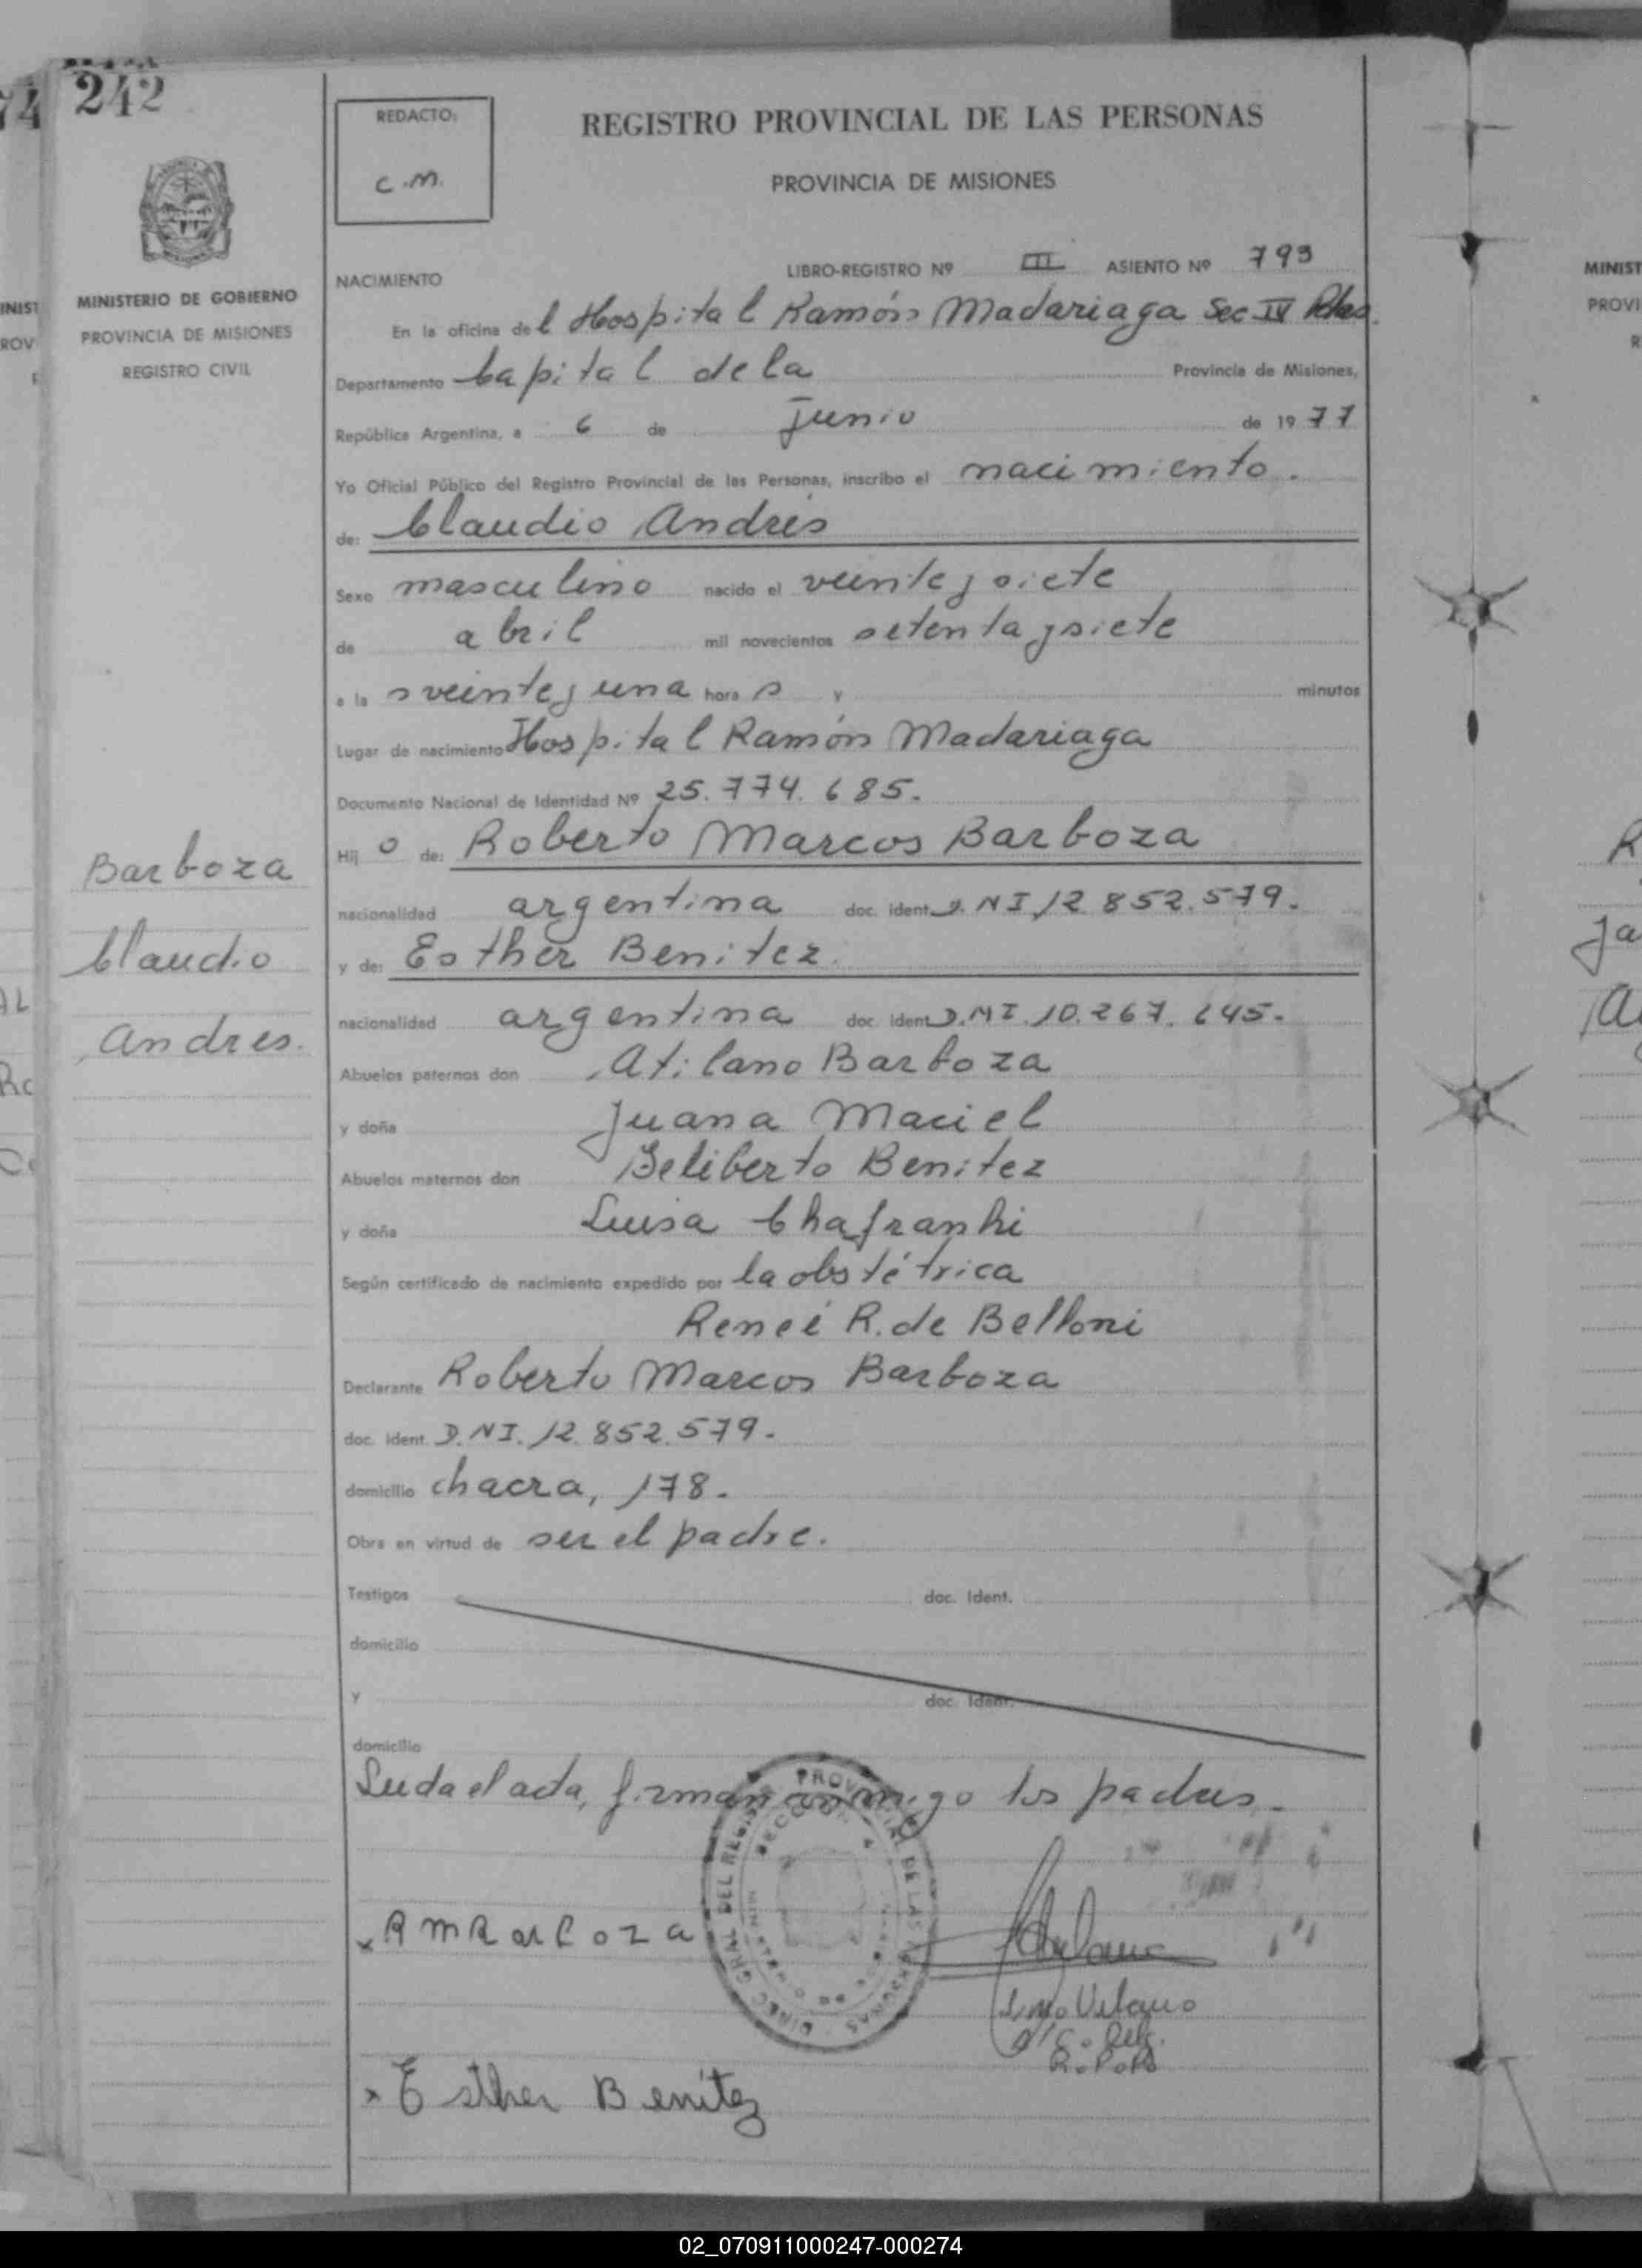 242
REDACTO:
C.M.
REGISTRO PROVINCIAL DE LAS PERSONAS
PROVINCIA DE MISIONES
MINISTERIO DE GOBIERNO
PROVINCIA DE MISIONES
REGISTRO CIVIL
LIBRO-REGISTRO Nº III ASIENTO Nº 793
NACIMIENTO
En la oficina del Hospital Ramón Madariaga Sec IV Pdas.
Departamento Capital de la Provincia de Misiones,
República Argentina, a 6 de Junio de 1977
Yo Oficial Público del Registro Provincial de las Personas, inscribo el nacimiento.
de: Claudio Andrés
Sexo masculino nacido el veintey siete
de abril mil novecientos setenta y siete
a la s veintey una hora s y minutos
Lugar de nacimiento Hospital Ramón Madariaga
Documento Nacional de Identidad Nº 25.774.685.
Hij o de: Roberto Marcos Barboza
nacionalidad argentina doc. ident. D.NI 12.852.579.
y de: Esther Benitez.
nacionalidad argentina doc. ident. D.NI. 10.267.645.
Abuelos paternos don Atilano Barboza
y doña Juana Maciel
Abuelos maternos don Beliberto Benitez
y doña Luisa Chafranhi
Según certificado de nacimiento expedido por la obstétrica
Reneé R. de Belloni
Declarante Roberto Marcos Barboza
doc. ident. D.NI. 12.852.579.
domicilio chacra, 178.
Obra en virtud de ser el padre.
Testigos doc. Ident.
domicilio
y doc. Ident.
domicilio
Leida el acta, firman conmigo los padres.
Barboza
Claudio
Andres.
DIREC. GRAL. DEL REGIS. PROVINCIAL DE LAS PERSONAS
SECCION 4
x R M Barboza
x Esther Benitez
R.P.P.
MINIST
PROVI
02_070911000247-000274